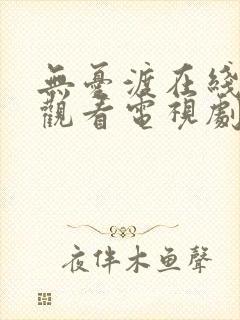 無憂渡在綫
觀看電視劇
夜伴木鱼聲